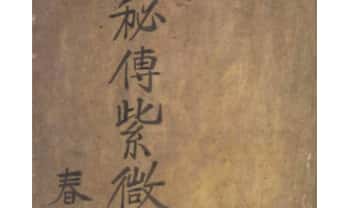 秘傳紫微
春